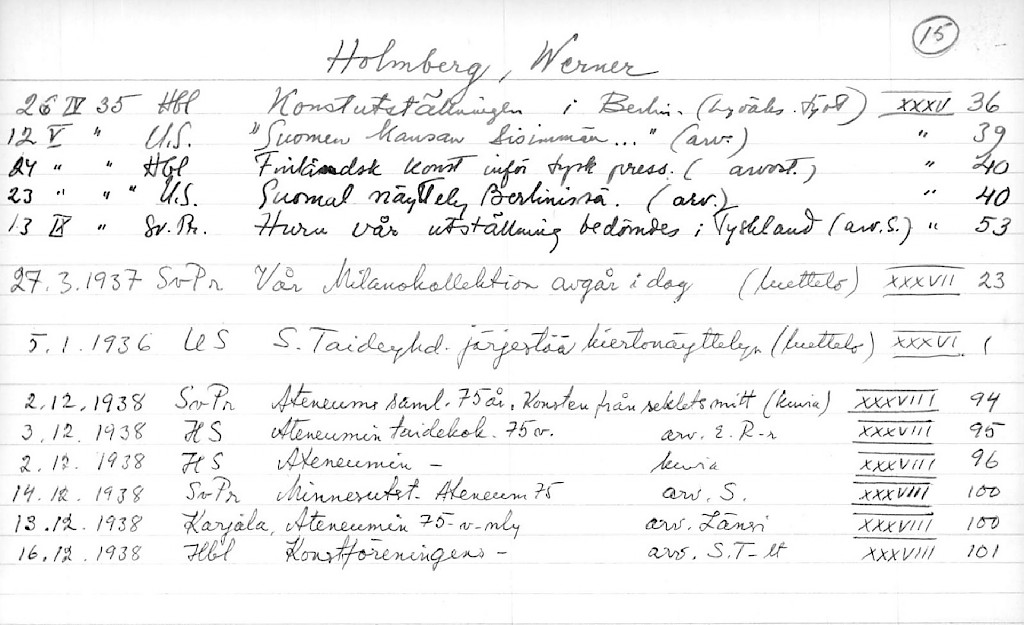 15
Holmberg, Werner
26 IV 35 Hbl Konstutställningen i Berlin. XXXV 36
12 V " U.S. "Suomen kansan sisimmän..." (arv.) " 39
24 " " Hbl Finländsk konst inför tysk press. (arvost.) " 40
23 " " " U.S. Suomal näyttely Berliinissä. (arv.) " 40
13 IX " Sv.Pr. Huru vår utställning bedömdes i Tyskland (arv. S.) " 53
27.3.1937 SvPr Vår Milanokollektion avgår i dag (luettelo) XXXVII 23
5.1.1936 US S. Taideyhd. järjestää kiertonäyttelyn (luettelo) XXXVI. 1
2.12.1938 SvPr Ateneums saml. 75 år. Konsten från seklets mitt (kuvia) XXXVIII 94
3.12.1938 HS Ateneumin taidekok. 75 v. arv. E. R-r XXXVIII 95
2.12.1938 HS Ateneumin - kuvia XXXVIII 96
14.12.1938 SvPr Minnesutst. Ateneum 75 arv. S. XXXVIII 100
13.12.1938 Karjala, Ateneumin 75-v-nly arv. Länsi XXXVIII 100
16.12.1938 Hbl Konstföreningens - arv. S.T-lt XXXVIII 101